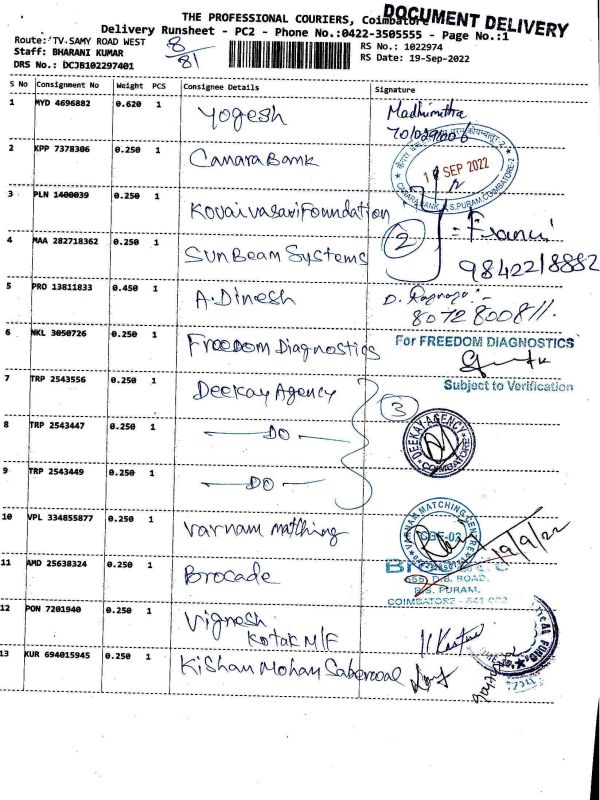 THE PROFESSIONAL COURIERS, Coimbatore
DOCUMENT DELIVERY
Delivery Runsheet - PC2 - Phone No.:0422-3505555 - Page No.:1
Route: TV.SAMY ROAD WEST
8/81
RS No.: 1022974
Staff: BHARANI KUMAR
RS Date: 19-Sep-2022
DRS No.: DCJB102297401
S No Consignment No Weight PCS Consignee Details Signature
1 MYD 4696882 0.620 1 Yogesh Madhumitha
2 KPP 7378306 0.250 1 Canara Bank
SEP 2022
CANARA BANK, R.S.PURAM, COIMBATORE-2
3 PLN 1400039 0.250 1 Kovaivasavi Foundation
4 MAA 282718362 0.250 1 Sun Beam Systems
2
9842218882
5 PRO 13811833 0.450 1 A. Dinesh
8072800811
6 NKL 3050726 0.250 1 Freedom Diagnostics
For FREEDOM DIAGNOSTICS
Subject to Verification
7 TRP 2543556 0.250 1 Deekay Agency
3
8 TRP 2543447 0.250 1 DO
DEEKAY AGENCY
COIMBATORE
9 TRP 2543449 0.250 1 DO
10 VPL 334855877 0.250 1 Varnam matthing
VARNAM MATCHING CENTRE
CBE-02
19/9/22
11 AMD 25638324 0.250 1 Brocade
D.B. ROAD,
R.S. PURAM,
COIMBATORE - 641 002
12 PON 7201940 0.250 1 Vignesh
Kotak M/F
13 KUR 694015945 0.250 1 Kishan Mohan Saberooal